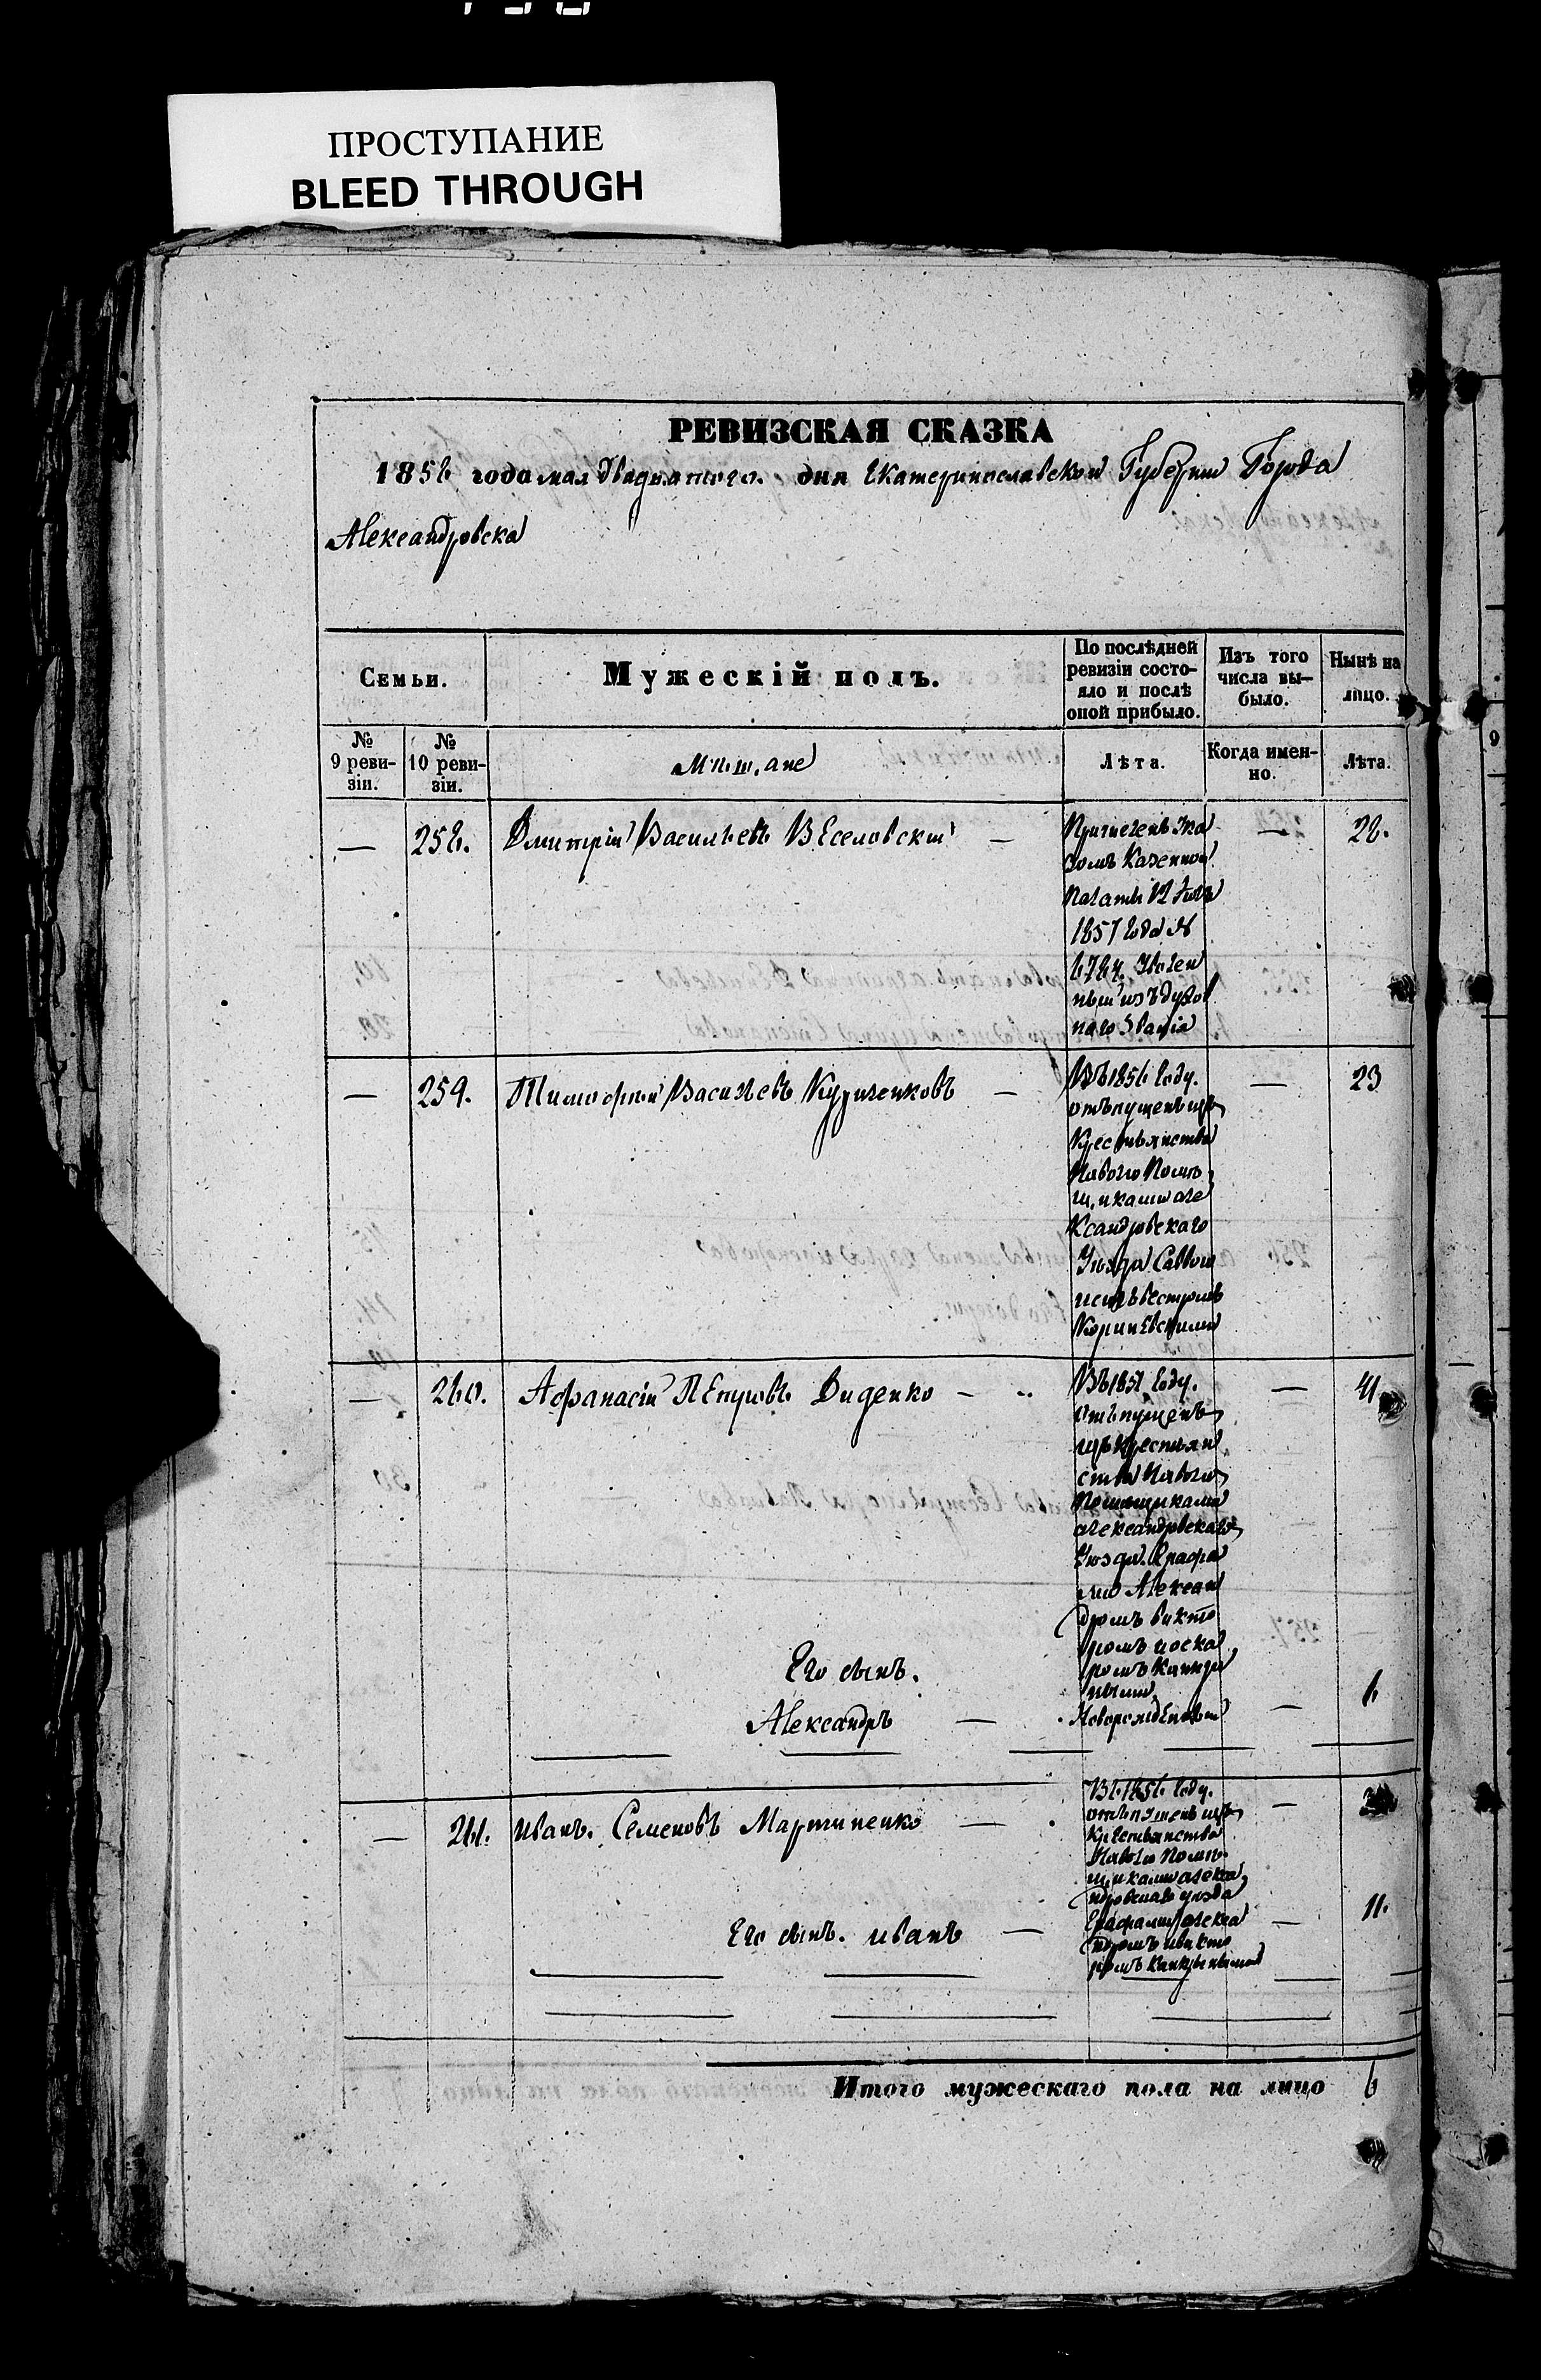 ПРОСТУПАНИЕ
BLEED THROUGH
РЕВИЗСКАЯ СКАЗКА
1858 года мая Двадцатого дня Екатеринославской Губерніи Города
Александровска
Семьи.
Мужескій полъ.
По послѣдней ревизіи состояло и послѣ оной прибыло.
Изъ того числа выбыло.
Нынѣ на лицо.
№ 9 ревизіи.
№ 10 ревизіи.
Мѣщане
Лѣта.
Когда именно.
Лѣта.
— 258. Дмитрій Васильевъ Веселовскій — — 28.
Причисленъ Ука
зомъ Казенной
Палаты 12
1857 года №
ный изъ духов
наго званія
— 259. Тимофей Васильевъ Куриченковъ — — 23
Въ 1856 году.
отъпущенъ изъ
Крестьянства
Наволю Помѣ
щиками Але
ксандровскаго
Уѣзда
— 260. Афанасій Петровъ Диденко — — 41
Въ 1851 году.
отъпущенъ
изъ Крестьян
ства Наволю
Помѣщиками
Александровскаго
Уѣзда Графа
ми Алексан
дромъ Викто
ромъ и Оска
ромъ Канкри
ными
Его сынъ.
Александръ — Новорожденный — 6
— 261. Иванъ. Семеновъ Мартиненко — —
Въ 1856 году.
отъпущенъ изъ
Крестьянства
Наволю Помѣ
щиками Алекса
ндровскаго уѣзда
Графами Алекса
ндромъ и Викто
ромъ Канкриными
Его сынъ. Иванъ — — 11.
Итого мужескаго пола на лицо 6
9